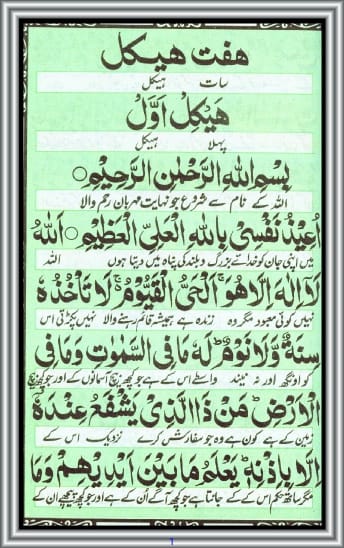 هفت هیکل
سات ہیکل
هَیْکَلِ اَوَّلْ
پہلا ہیکل
بِسْمِ اللهِ الرَّحْمٰنِ الرَّحِیْمِ ○
اللہ کے نام سے شروع جو نہایت مہربان رحم والا
اُعِیْذُ نَفْسِیْ بِاللهِ الْعَلِیِّ الْعَظِیْمِ ○ اَللهُ
میں اپنی جان کو خدائے بزرگ و بلند کی پناہ میں دیتا ہوں اللہ
لَآ اِلٰهَ اِلَّا هُوَ ۚ اَلْحَیُّ الْقَیُّوْمُ ۚ لَا تَاْخُذُهٗ
نہیں کوئی معبود مگر وہ زندہ ہے ہمیشہ قائم رہنے والا نہیں پکڑتی اس
سِنَةٌ وَّلَا نَوْمٌ ؕ لَهٗ مَا فِی السَّمٰوٰتِ وَمَا فِی
کو اونگھ اور نہ نیند واسطے اس کے ہے جو کچھ بیچ آسمانوں کے اور جو کچھ بیچ
الْاَرْضِ ؕ مَنْ ذَا الَّذِیْ یَشْفَعُ عِنْدَهٗۤ
زمین کے ہے کون ہے وہ جو سفارش کرے نزدیک اس کے
اِلَّا بِاِذْنِهٖ ؕ یَعْلَمُ مَا بَیْنَ اَیْدِیْهِمْ وَمَا
مگر ساتھ حکم اس کے کے جانتا ہے جو کچھ آگے اُن کے ہے اور جو کچھ پیچھے ان کے
1